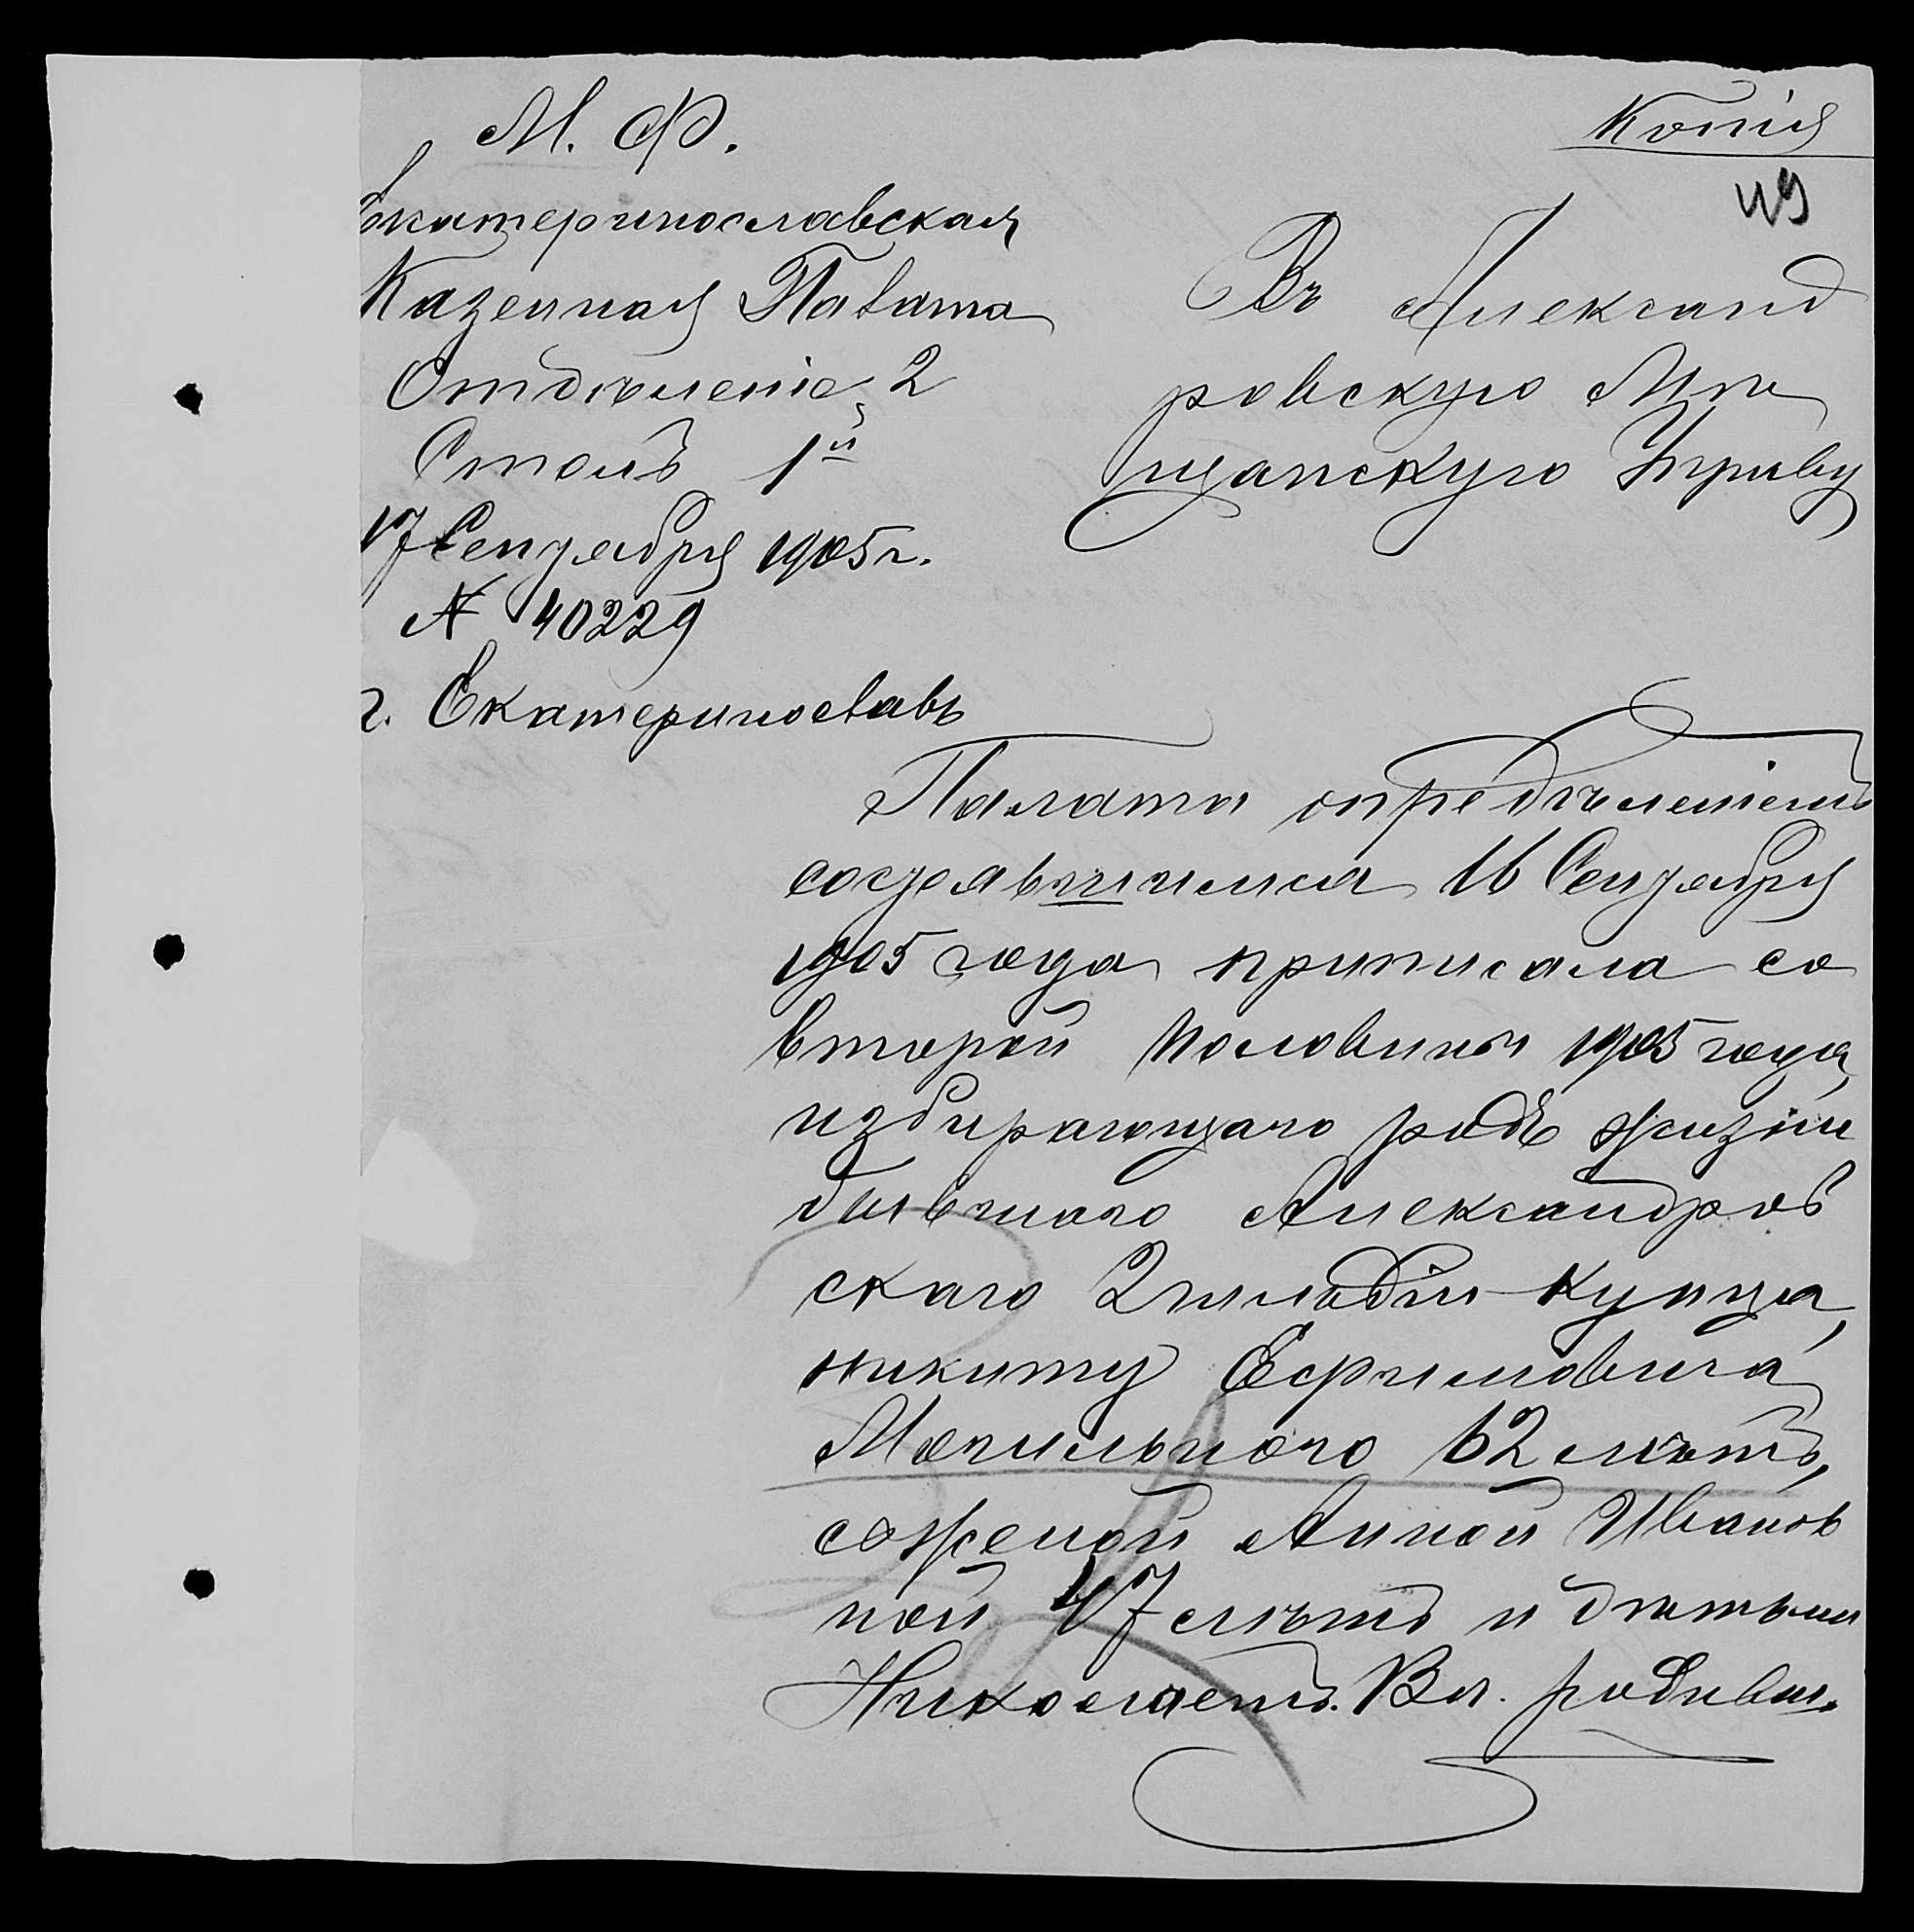 М. Ф.
Екатеринославская
Казенная Палата
Отдѣленіе 2
Столъ 1й
17 Сентября 1905 г.
№ 40229
г. Екатеринославъ
Копія
49
Въ Александ
ровскую Мѣ
щанскую Управу
Палата опредѣленіемъ
состоявшимися 16 Сентября
1905 года приписала со
второй половины 1905 года,
избирающаго родъ жизни
бывшаго Александров
скаго 2 гильдіи купца,
Никиту Ефимовича
Могильного 62 лѣтъ,
со женой Анной Иванов
ной 47 лѣтъ и дѣтьми
Николаемъ. Вл. родивш.